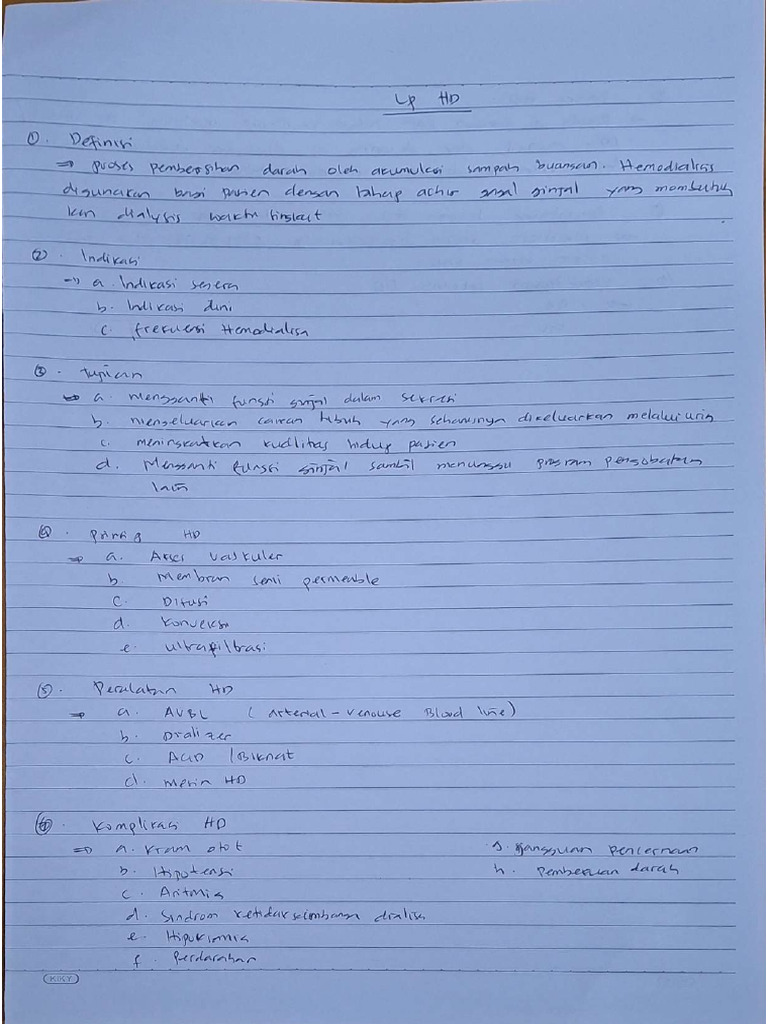 Lp HD
①. Definisi
⇒ proses pembersihan darah oleh akumulasi sampah buangan. Hemodialisis
digunakan bagi pasien dengan tahap achir gagal ginjal yang membutuh
kan dialysis waktu singkat
②. Indikasi
→ a. Indikasi segera
b. Indikasi dini
c. frekuensi Hemodialisa
③. Tujuan
⇒ a. mengganti fungsi ginjal dalam sekresi
b. mengeluarkan cairan tubuh yang seharusnya dikeluarkan melalui urin
c. meningkatkan kualitas hidup pasien
d. Mengganti fungsi ginjal sambil menunggu program pengobatan
lain
④. HD
⇒ a. Akses vaskuler
b. Membran semi permeable
c. Difusi
d. Konveksi
e. ultrafiltrasi
⑤. Peralatan HD
⇒ a. AVBL (Arterial - Venouse Blood line)
b. Dializer
c. Acid / Biknat
d. Mesin HD
⑥. Komplikasi HD
⇒ a. kram otot
b. Hipotensi
c. Aritmia
d. Sindrom ketidakseimbangan dialisa
e. Hipoksemia
f. Perdarahan
g. gangguan pencernaan
h. Pembekuan darah
KIKY